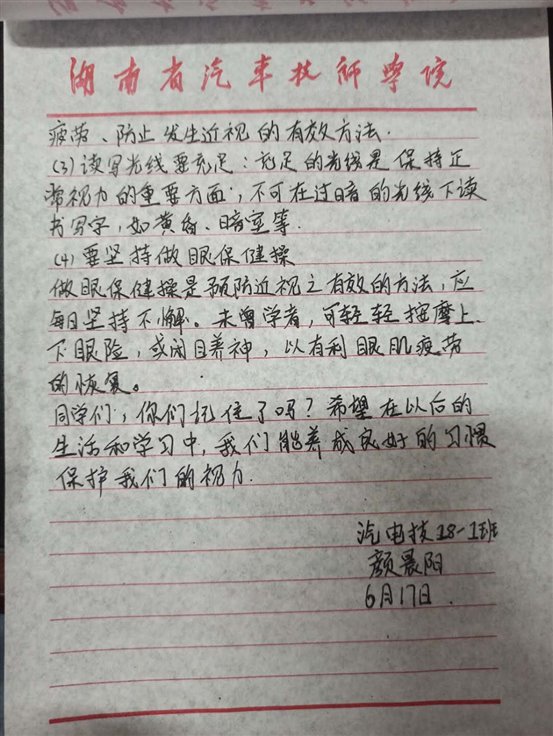 湖南省汽车技师学院
疲劳、防止发生近视的有效方法.
(3)读写光线要充足：充足的光线是保持正
常视力的重要方面，不可在过暗的光线下读
书写字，如黄昏、暗室等.
(4)要坚持做眼保健操
做眼保健操是预防近视之有效的方法，应
每日坚持不懈。未曾学者，可轻轻按摩上.
下眼睑，或闭目养神，以有利眼肌疲劳
的恢复。
同学们，你们记住了吗？希望在以后的
生活和学习中，我们能养成良好的习惯
保护我们的视力.
汽电技18-1班
颜晨阳
6月17日.